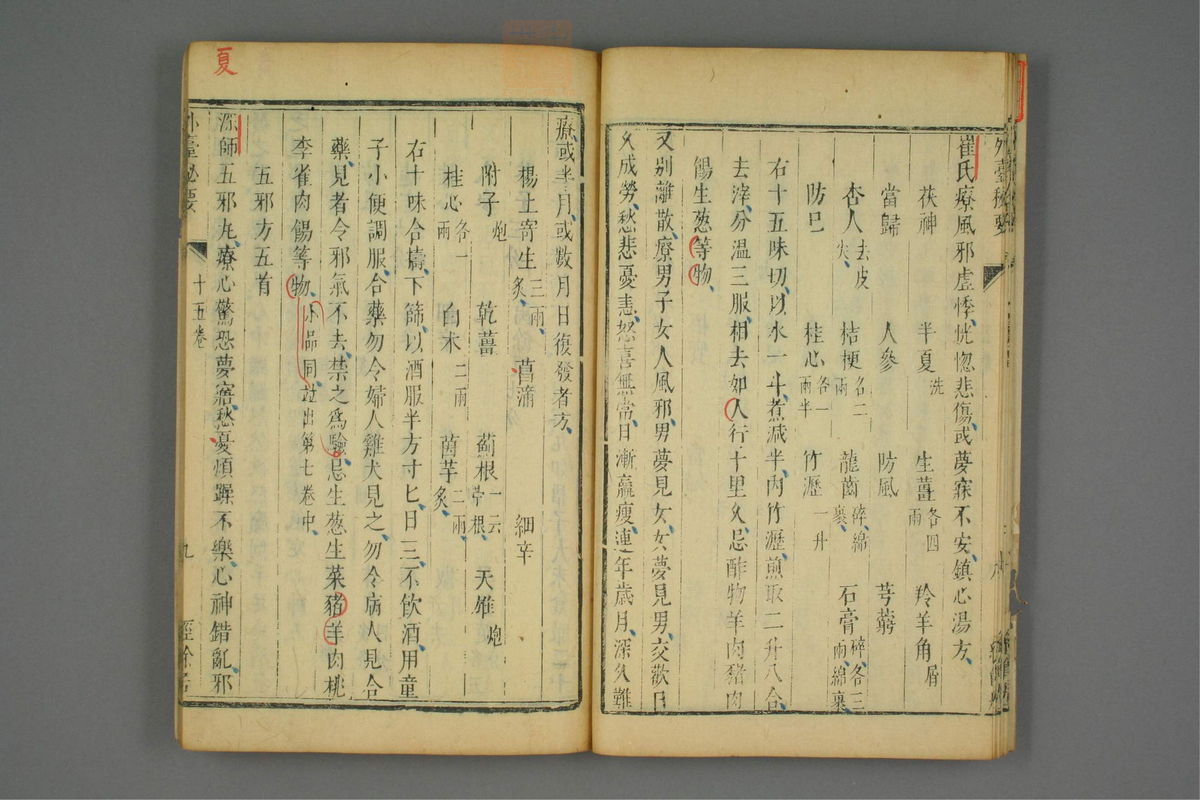 外臺秘要
崔氏療風邪虛悸恍惚悲傷或夢寐不安鎮心湯方
茯神 半夏洗 生薑各四兩 羚羊角屑
當歸 人參 防風 芎藭
杏人去皮尖 桔梗各二兩 龍齒碎綿裹 石膏碎各三兩綿裹
防巳 桂心各一兩半 竹瀝一升
右十五味切以水一斗煮減半內竹瀝煎取二升八合
去滓分溫三服相去如人行十里久忌酢物羊肉豬肉
餳生葱等物
又別離散療男子女人風邪男夢見女女夢見男交歡日
久成勞愁悲憂恚怒喜無常日漸羸瘦連年歲月深久難
療或半月或數月日復發者方
楊上寄生三兩炙 菖蒲 細辛
附子炮 乾薑 薊根一云茜根 天雄炮
桂心各一兩 白朮二兩 茵芋二兩炙
右十味合擣下篩以酒服半方寸匕日三不飲酒用童
子小便調服合藥勿令婦人雞犬見之勿令病人見合
藥見者令邪氣不去禁之為驗忌生葱生菜豬羊肉桃
李雀肉餳等物小品同並出第七卷中
五邪方五首
深師五邪丸療心驚恐夢寤愁憂煩躁不樂心神錯亂邪
外臺秘要 十五卷 九 經餘居
夏